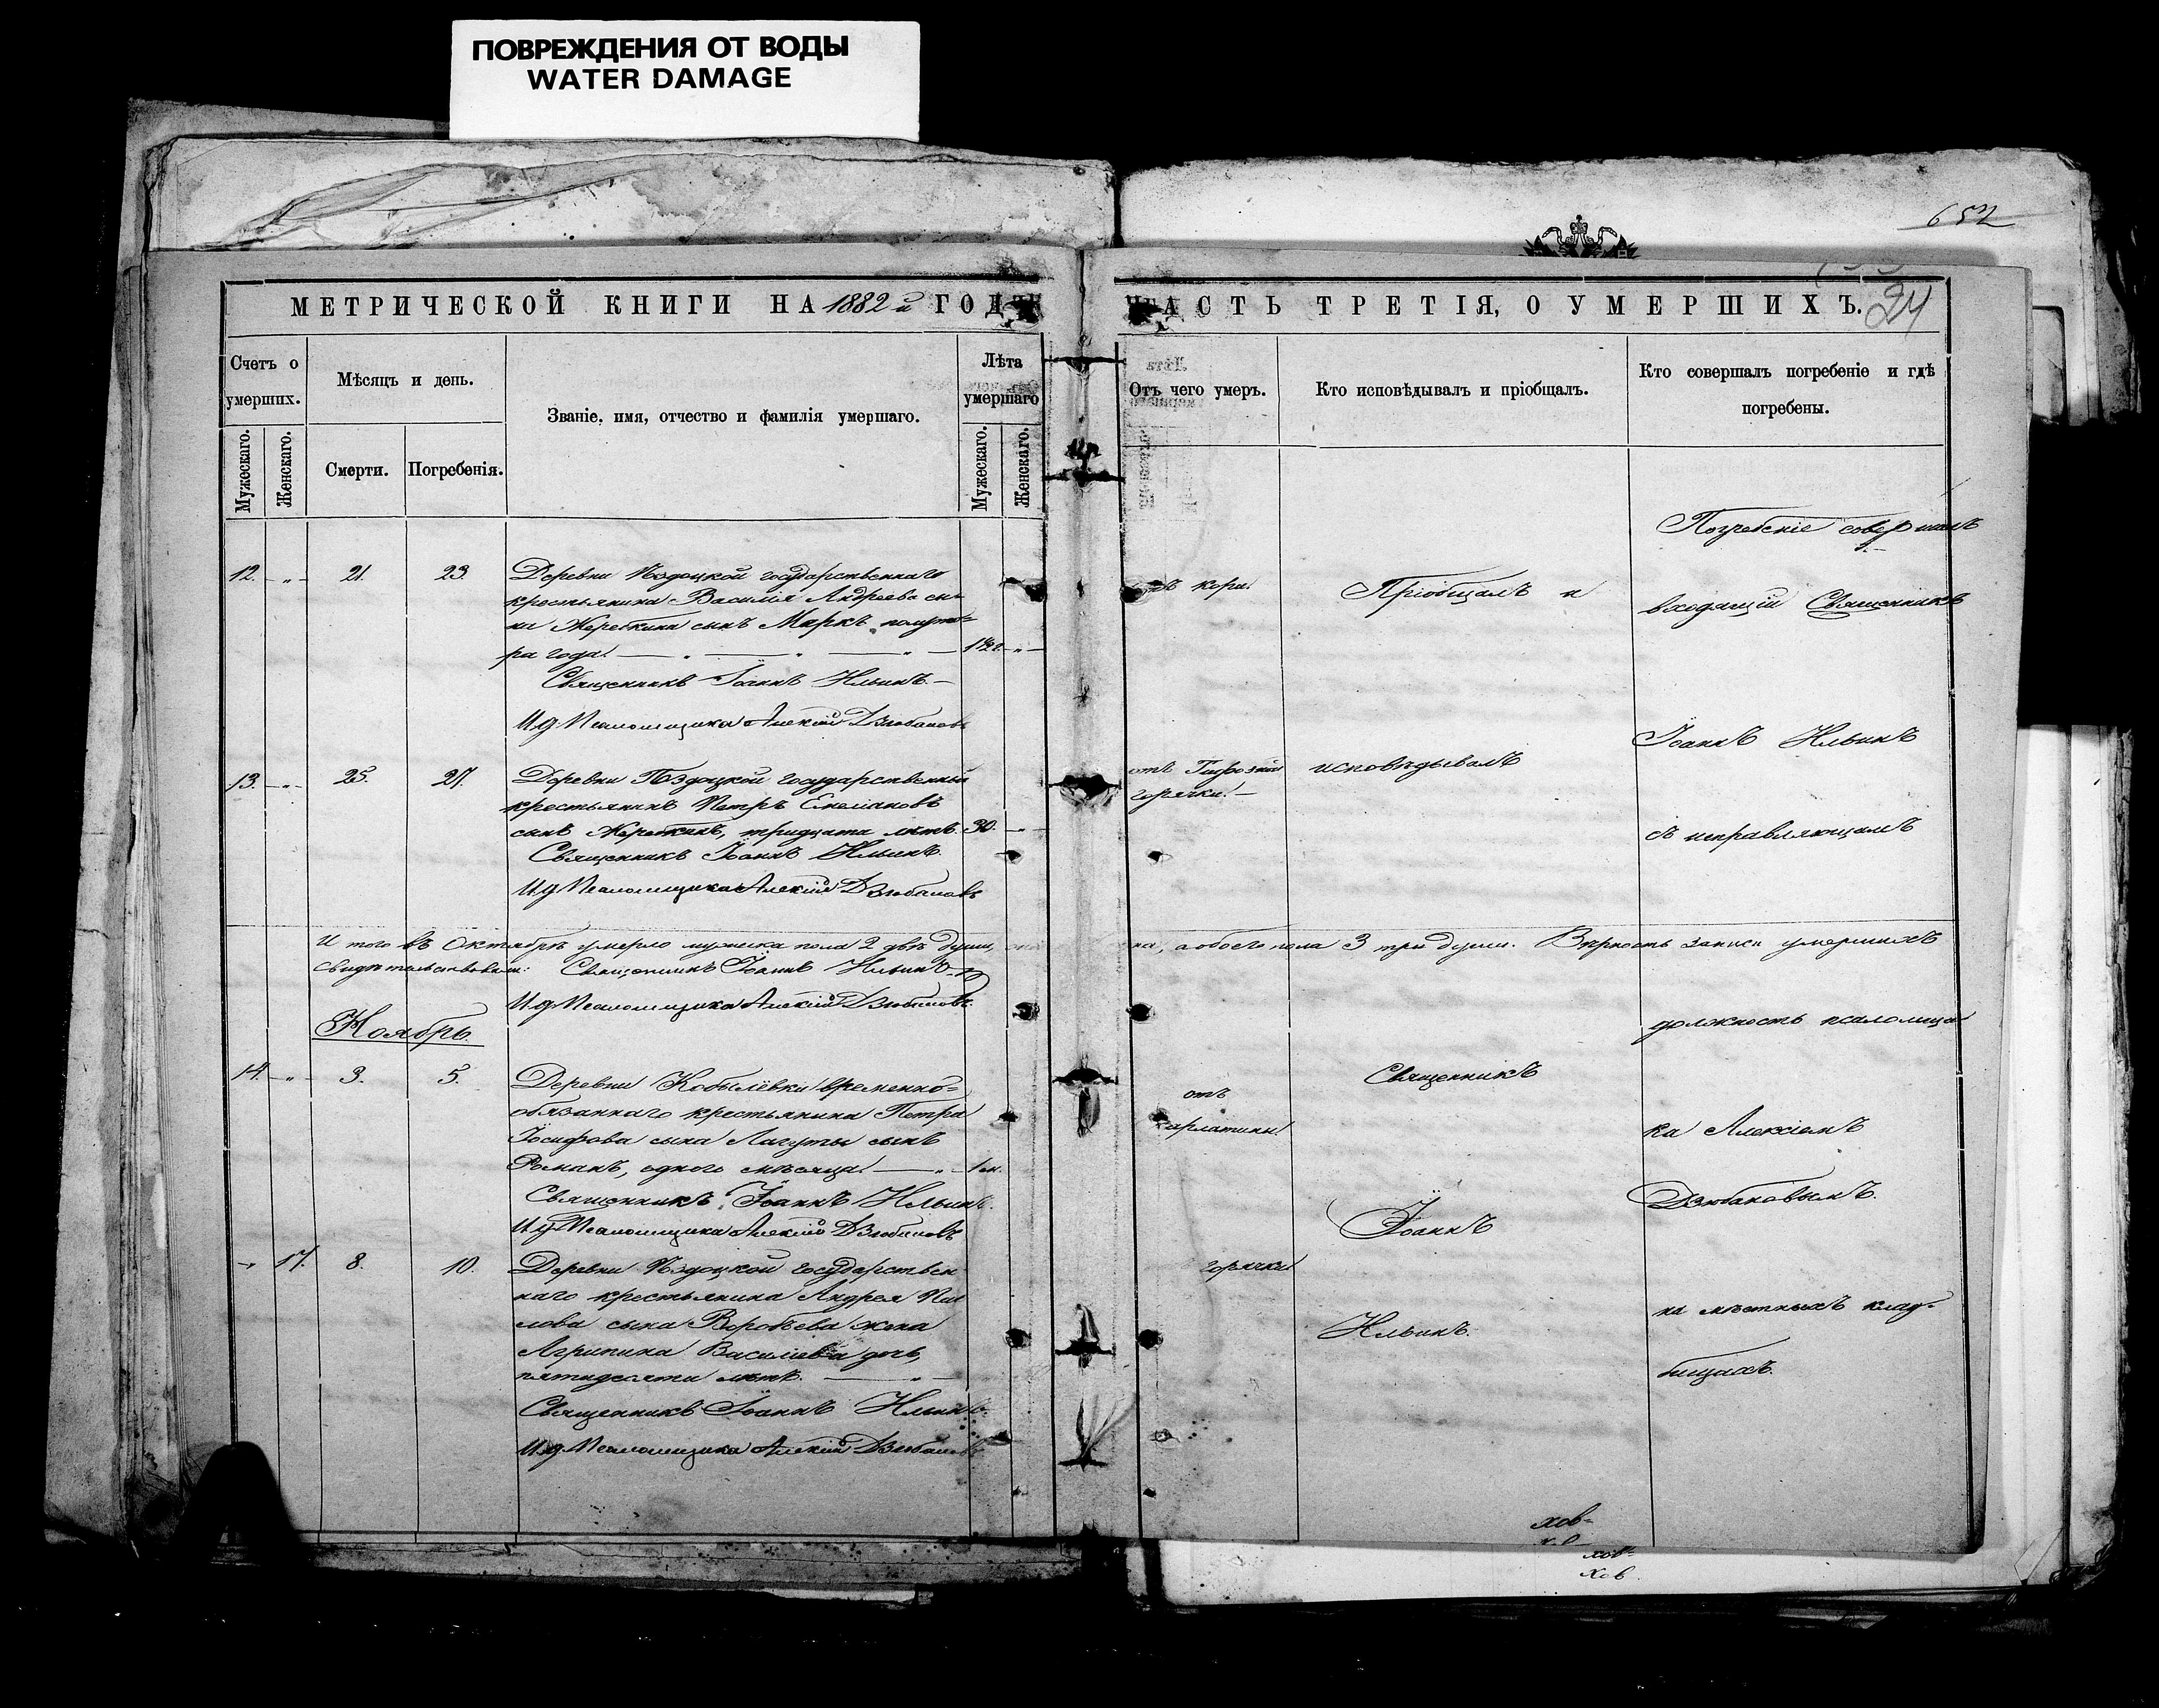 ПОВРЕЖДЕНИЯ ОТ ВОДЫ
WATER DAMAGE
652
МЕТРИЧЕСКОЙ КНИГИ НА 1882 й ГОДЪ
ЧАСТЬ ТРЕТІЯ, О УМЕРШИХЪ.
24
Счетъ о умерших.
Мѣсяцъ и день.
Званіе, имя, отчество и фамилія умершаго.
Лѣта умершаго
Мужескаго.
Женскаго.
Смерти.
Погребенія.
Мужескаго.
Женскаго.
Отъ чего умеръ.
Кто исповѣдывалъ и пріобщалъ.
Кто совершалъ погребеніе и гдѣ
погребены.
12. 21. 23. Деревни государственнаго
крестьянина Василія Андреева сы-
на Жереткина сынъ Маркъ, полуто-
ра года. 1½ г.
Священникъ Іоаннъ Ильинъ.
И.д. Псаломщика Алексій Дзюбановъ
13. 25. 27. Деревни государственный
крестьянинъ Петръ Емеліановъ
сынъ Жереткинъ, тридцати лѣтъ. 30.
Священникъ Іоаннъ Ильинъ.
И.д. Псаломщика Алексій Дзюбановъ
И того въ Октябрѣ умерло мужеска пола 2 двѣ души,
свидѣтельствовали: Священникъ Іоаннъ Ильинъ
И.д. Псаломщика Алексій Дзюбановъ.
Ноябрь.
14. 3. 5. Деревни Кобылёвки временно-
обязаннаго крестьянина Петра
Іосифова сына Лагуты сынъ
Романъ, одного мѣсяца. 1 м.
Священникъ Іоаннъ Ильинъ.
И.д. Псаломщика Алексій Дзюбановъ
17. 8. 10. Деревни государствен
наго крестьянина Андрея
сына Воробьева жена
Агрипина Василіева дочь,
пятидесяти лѣтъ.
Священникъ Іоаннъ Ильинъ.
И.д. Псаломщика Алексій Дзюбановъ
кори.
отъ
горячки.
а обоего пола 3 три души. Вѣрность записи умершихъ
отъ
горячки
Пріобщалъ и
исповѣдывалъ
Священникъ
Іоаннъ
Ильинъ.
Погребеніе совершалъ
входящій Священникъ
Іоаннъ Ильинъ
съ исправляющимъ
должность псаломщи
ка Алексіемъ
Дзюбановымъ.
на мѣстныхъ клад-
бищахъ.
хов-
хов-
хов